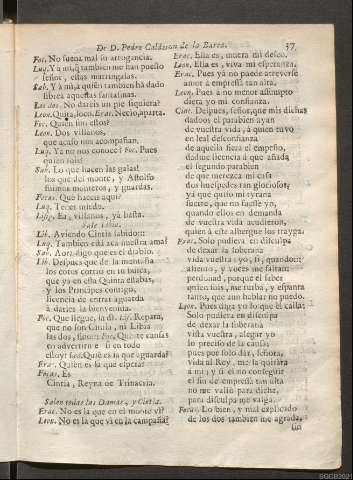 De D. Pedro Calderon de la Barca. 37
For. No suena mal su arrogancia.
Luq. Y à mi, q̃ tambien me han puesto
señor, estas martingalas.
Sab. Y à mi, à quien tambien hà dado
librea aquestas fantasmas.
Los dos. No dareis un pie siquiera?
Leon. Quita, loco. Erac. Necio, aparta.
For. Quien son estos?
Leon. Dos villanos,
que acaso nos acompañan.
Luq. Ya no nos conoce? For. Pues
quien sois?
Sab. Lo que hacen las galas!
los que del monte, y Astolfo
fuimos monteros, y guardas.
Foras. Què hacen aqui?
Luq. Tener miedo.
Lisip. Ea, villanos, yà basta.
Sale Libia.
Lib. Aviendo Cintia sabido:
Luq. Tambien està acà nuestra ama?
Sab. Aora digo que es el diablo.
Lib. Despues que de la montaña
los cotos corriò en tu busca,
que yà en esta Quinta estabas,
y los Principes contigo,
licencia de entrar aguarda
à darles la bienvenida.
For. Que llegue, la dì. Lisip. Repara,
que no son Cintia, ni Libia
las dos, señor: For. Que te cansas
en advertirme si en todo
estoy? Leo. Quiè es la que aguarda?
Erac. Quien es la que espera?
Foras. Es
Cintia, Reyna de Trinacria.
Salen todas las Damas, y Cintia.
Erac. No es la que en el monte vì?
Leon. No es la que vì en la campaña?
Erac. Ella es, muera mi deseo.
Leon. Ella es, viva mi esperanza.
Erac. Pues yà no puede atreverse
amor à empressa tan alta.
Leon. Pues à no mejor assumpto
diera yo mi confianza.
Cint. Despues, señor, que mis dichas
dadoos el parabien ayan
de vuestra vida, à quien tuvo
en leal desconfianza
de aquella fiera el empeño,
dadme licencia à que añada
el segundo parabien
de que merezca mi casa
dos huespedes tan gloriosos,
yà que quiso mi tyrana
suerte, que no fuesse yo,
quando ellos en demanda
de vuestra vida acudieron,
quien à este albergue los trayga.
Erac. Solo pudiera en disculpa
de dexar la soberana
vida vuestra; yo, si, quando:
aliento, y voces me faltan;
perdonad, porque el saber
quien sois, me turba, y espanta
tanto, que aun hablar no puedo.
Leon. Pues diga yo lo que èl calla:
Solo pudiera en disculpa
de dexar la soberana
vista vuestra, alegir yo
lo preciso de la causa;
pues por solo dàr, señora,
vida al Rey, me la quitàra
à mì; y si el no conseguir
el fin de empressa tan alta
no me valiò para dicha,
para disculpa me valga.
Foras. Lo bien, y mal explicado
de los dos tambien me agrada,